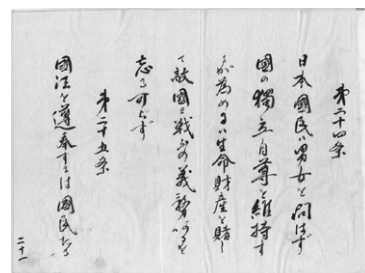 第二十四条
日本國民ハ男女を問はず
國の獨立自尊を維持す
るが為めにハ生命財産を賭し
て敵國と戦ふの義務あるを
忘る可らず
第二十五条
國法を遵奉するは國民たる
二十一